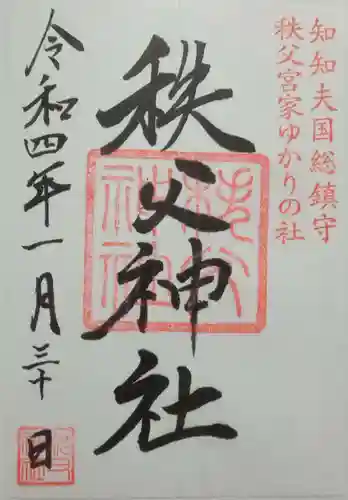 知知夫国総鎮守
秩父宮家ゆかりの社
秩父神社
秩父
神社
令和四年一月三十日